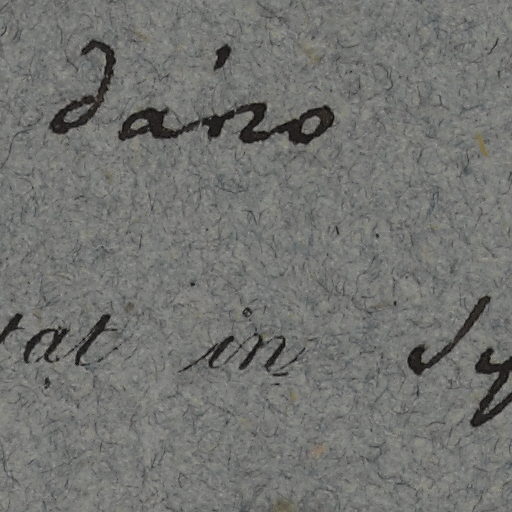 dáno
tat in Sy